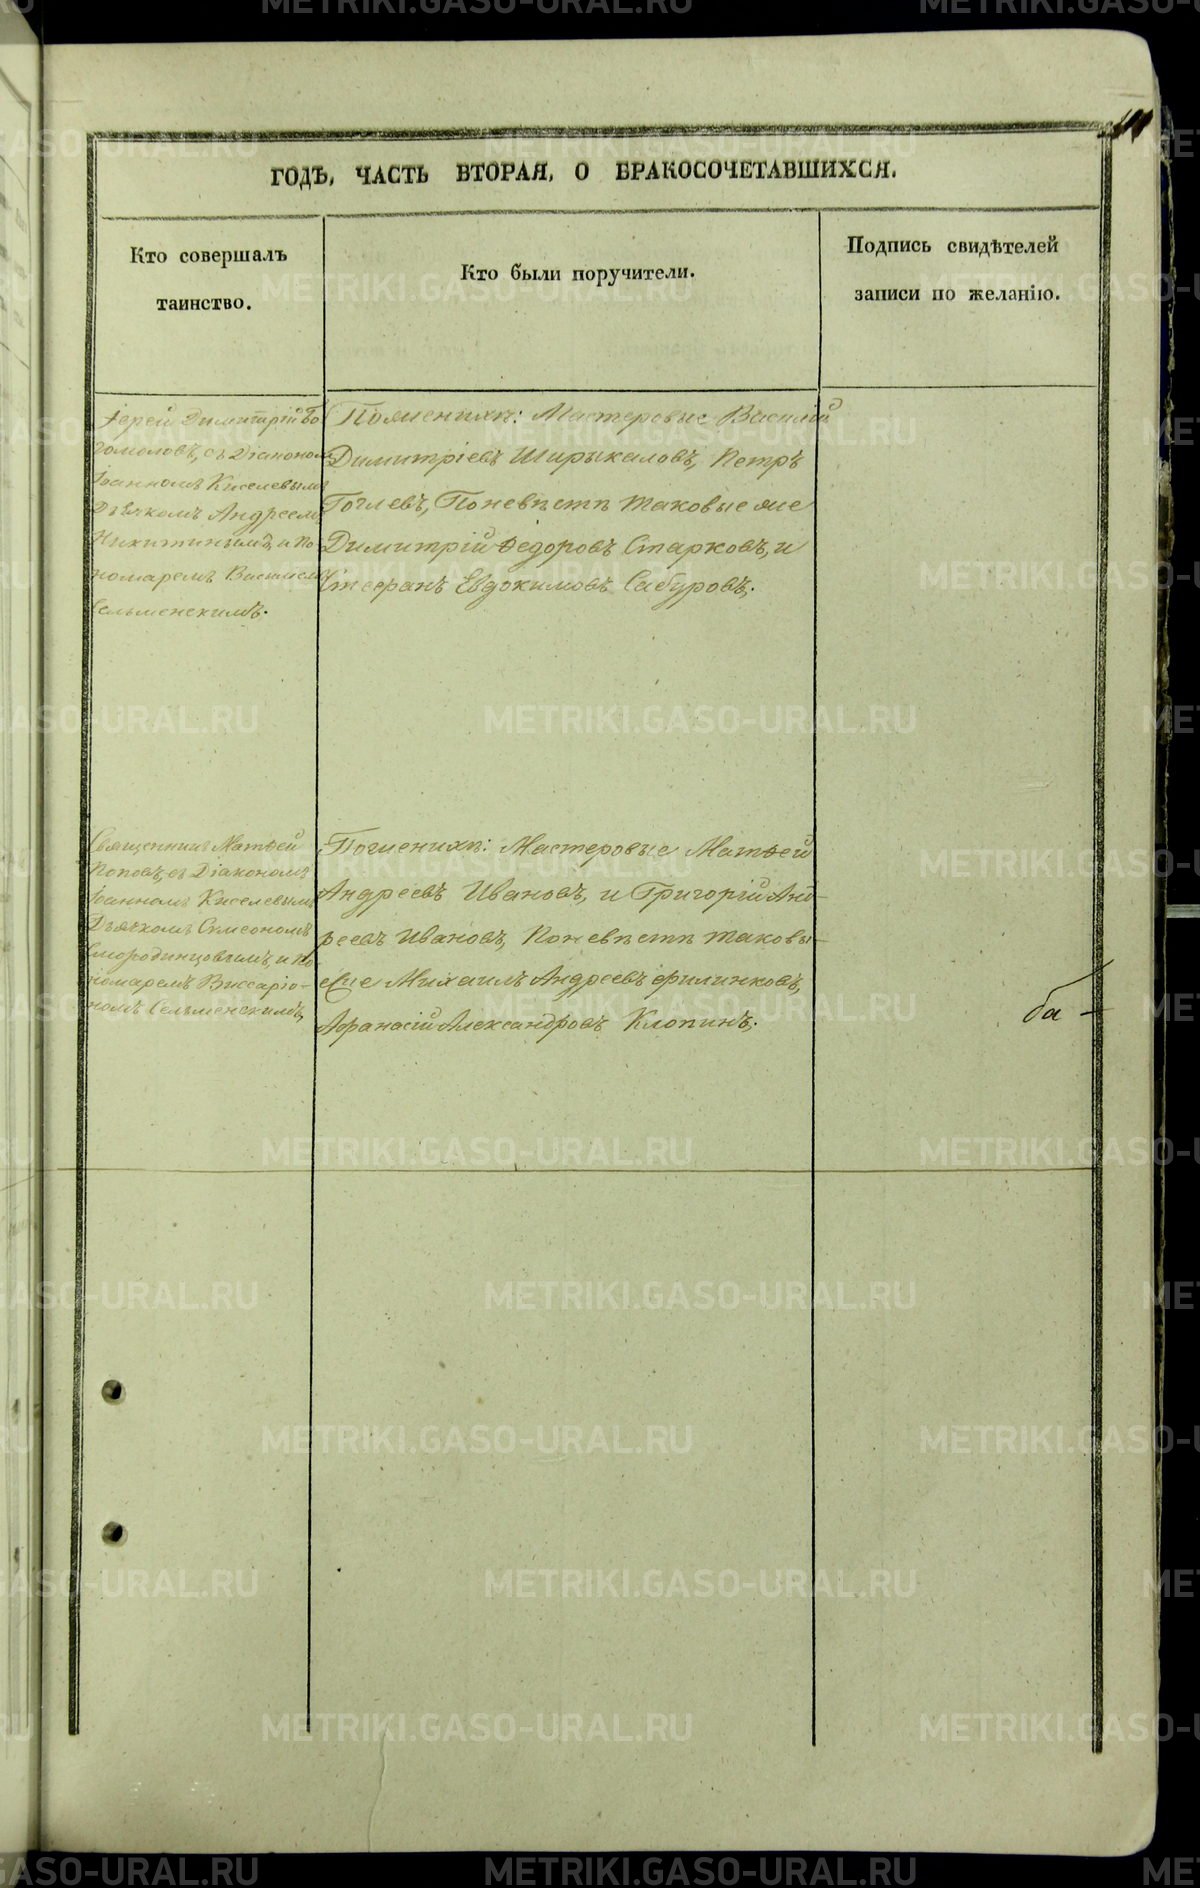 ГОДЪ, ЧАСТЬ ВТОРАЯ, О БРАКОСОЧЕТАВШИХСЯ.
Кто совершалъ
таинство.
Кто были поручители.
Подпись свидѣтелей
записи по желанію.
Іерей Димитрій Бо
гомоловъ, съ Діакономъ
Іоанномъ Киселевымъ
Дьячкомъ Андреемъ
Никитинымъ, и по
номаремъ Василіемъ
Сельменскимъ.
По женихѣ: Мастеровые Василій
Димитріевъ Ширыкаловъ, Петръ
По невѣстѣ таковые же
Димитрій Ѳедоровъ Старковъ, и
Стефанъ Евдокимовъ Сабуровъ.
Священникъ Матѳей
Поповъ, съ Діакономъ
Іоанномъ Киселевымъ
Дьячкомъ Симеономъ
Смородинцовымъ, и по
номаремъ Виссаріо-
номъ Сельменскимъ,
По женихѣ: Мастеровые Матѳей
Андреевъ Ивановъ, и Григорій Анд-
реевъ Ивановъ, По невѣстѣ таковы-
еже Михаилъ Андреевъ Филинковъ,
Афанасій Александровъ Клопинъ.
ба -
METRIKI.GASO-URAL.RU